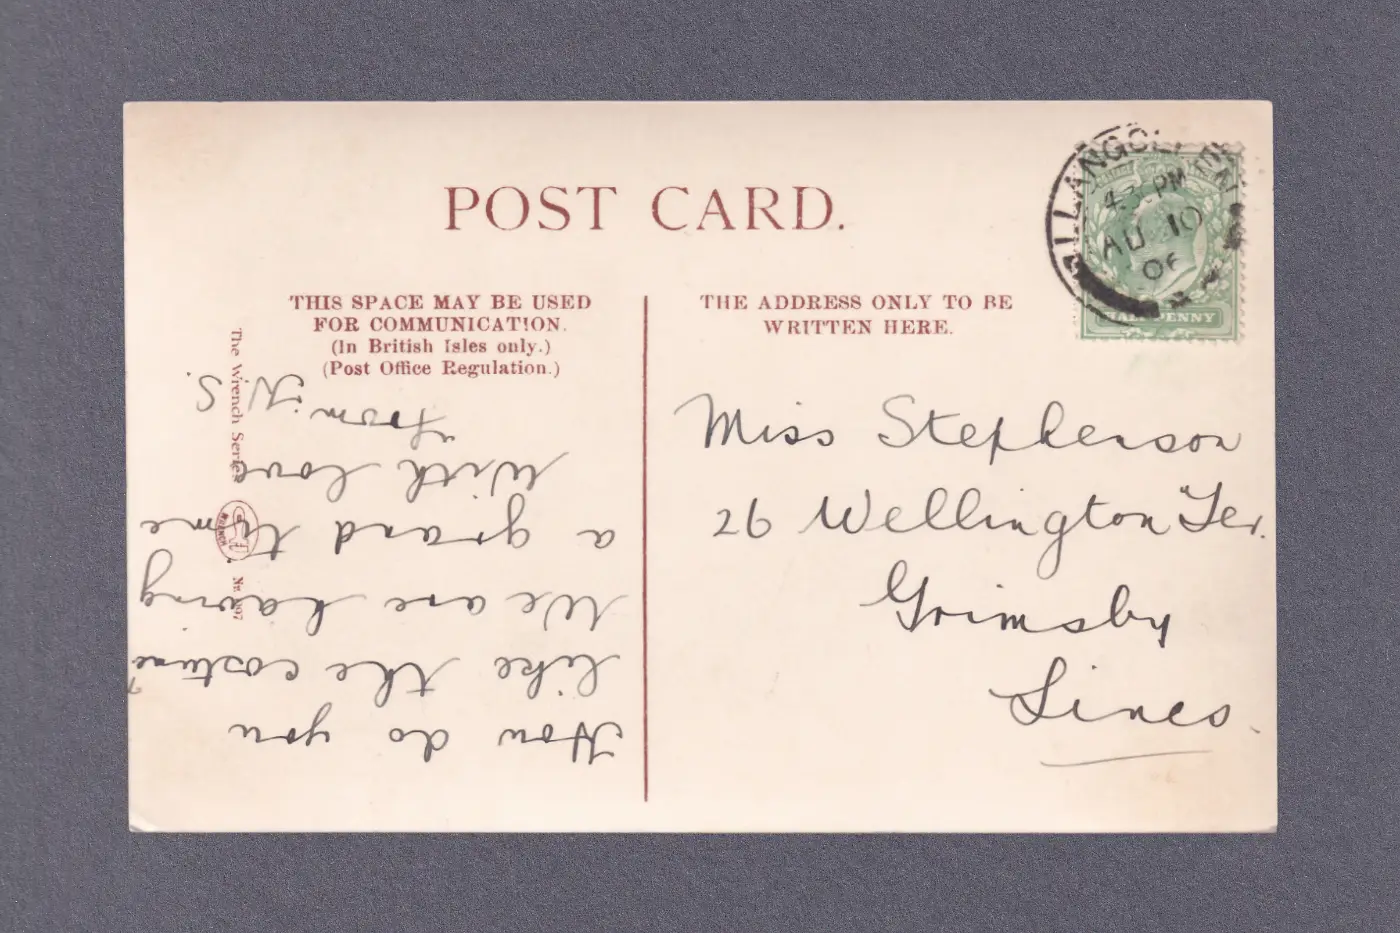 POST CARD.
THIS SPACE MAY BE USED
FOR COMMUNICATION.
(In British Isles only.)
(Post Office Regulation.)
THE ADDRESS ONLY TO BE
WRITTEN HERE.
The Wrench Series
WRENCH
How do you
like the costume?
We are having
a grand time
With love
from N. S.
Miss Stephenson
26 Wellington Ter.
Grimsby
Lincs
PM
AU 10
06
HALFPENNY